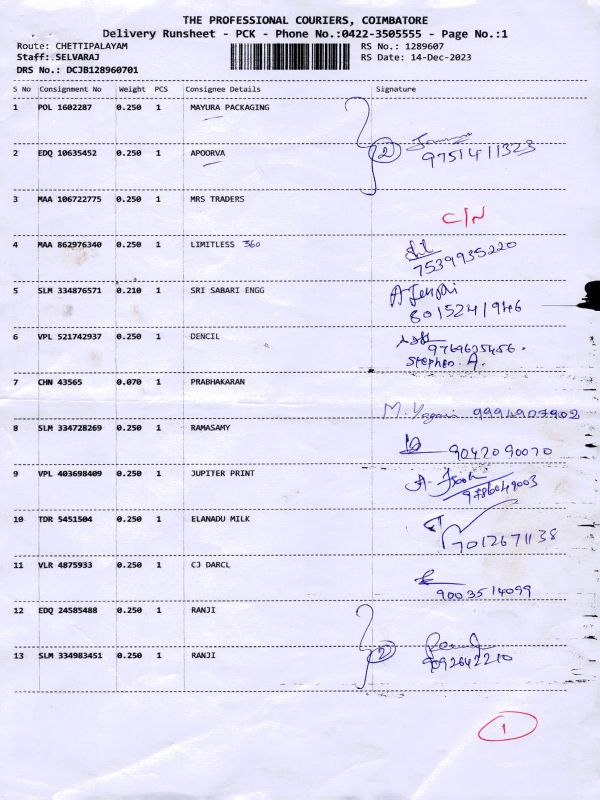 THE PROFESSIONAL COURIERS, COIMBATORE
Delivery Runsheet - PCK - Phone No.:0422-3505555 - Page No.:1
Route: CHETTIPALAYAM RS No.: 1289607
Staff: SELVARAJ RS Date: 14-Dec-2023
DRS No.: DCJB128960701
S No Consignment No Weight PCS Consignee Details Signature
1 POL 1602287 0.250 1 MAYURA PACKAGING
2 EDQ 10635452 0.250 1 APOORVA 2 9751411323
3 MAA 106722775 0.250 1 MRS TRADERS
C/N
4 MAA 862976340 0.250 1 LIMITLESS 360
7539935220
5 SLM 334876571 0.210 1 SRI SABARI ENGG
8015241946
6 VPL 521742937 0.250 1 DENCIL
9769625456.
STEPHEN. A.
7 CHN 43565 0.070 1 PRABHAKARAN
M.
8 SLM 334728269 0.250 1 RAMASAMY
9042090070
9 VPL 403698409 0.250 1 JUPITER PRINT
9786049003
10 TDR 5451504 0.250 1 ELANADU MILK
7012671138
11 VLR 4875933 0.250 1 CJ DARCL
9003514099
12 EDQ 24585488 0.250 1 RANJI
13 SLM 334983451 0.250 1 RANJI 2 9092642210
1